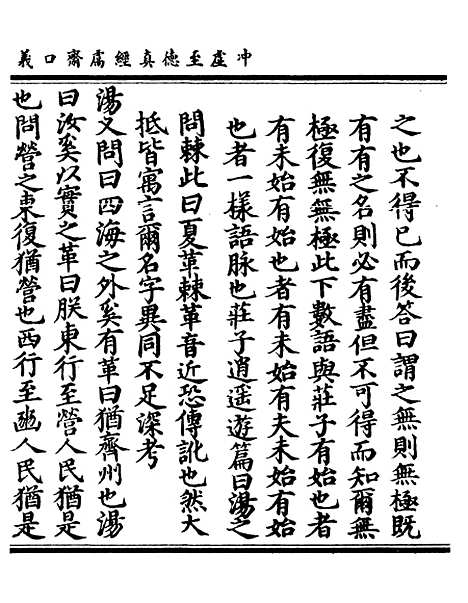 冲虚至德真經鬳齋口義
之也不得已而後答曰謂之無則無極既
有有之名則必有盡但不可得而知爾無
極復無無極此下數語與莊子有始也者
有未始有始也者有未始有夫未始有始
也者一樣語脉也莊子逍遥遊篇曰湯之
問棘此曰夏革棘革音近恐傳訛也然大
抵皆寓言爾名字異同不足深考
湯又問曰四海之外奚有革曰猶齊州也湯
曰汝奚以實之革曰朕東行至營人民猶是
也問營之東復猶營也西行至豳人民猶是